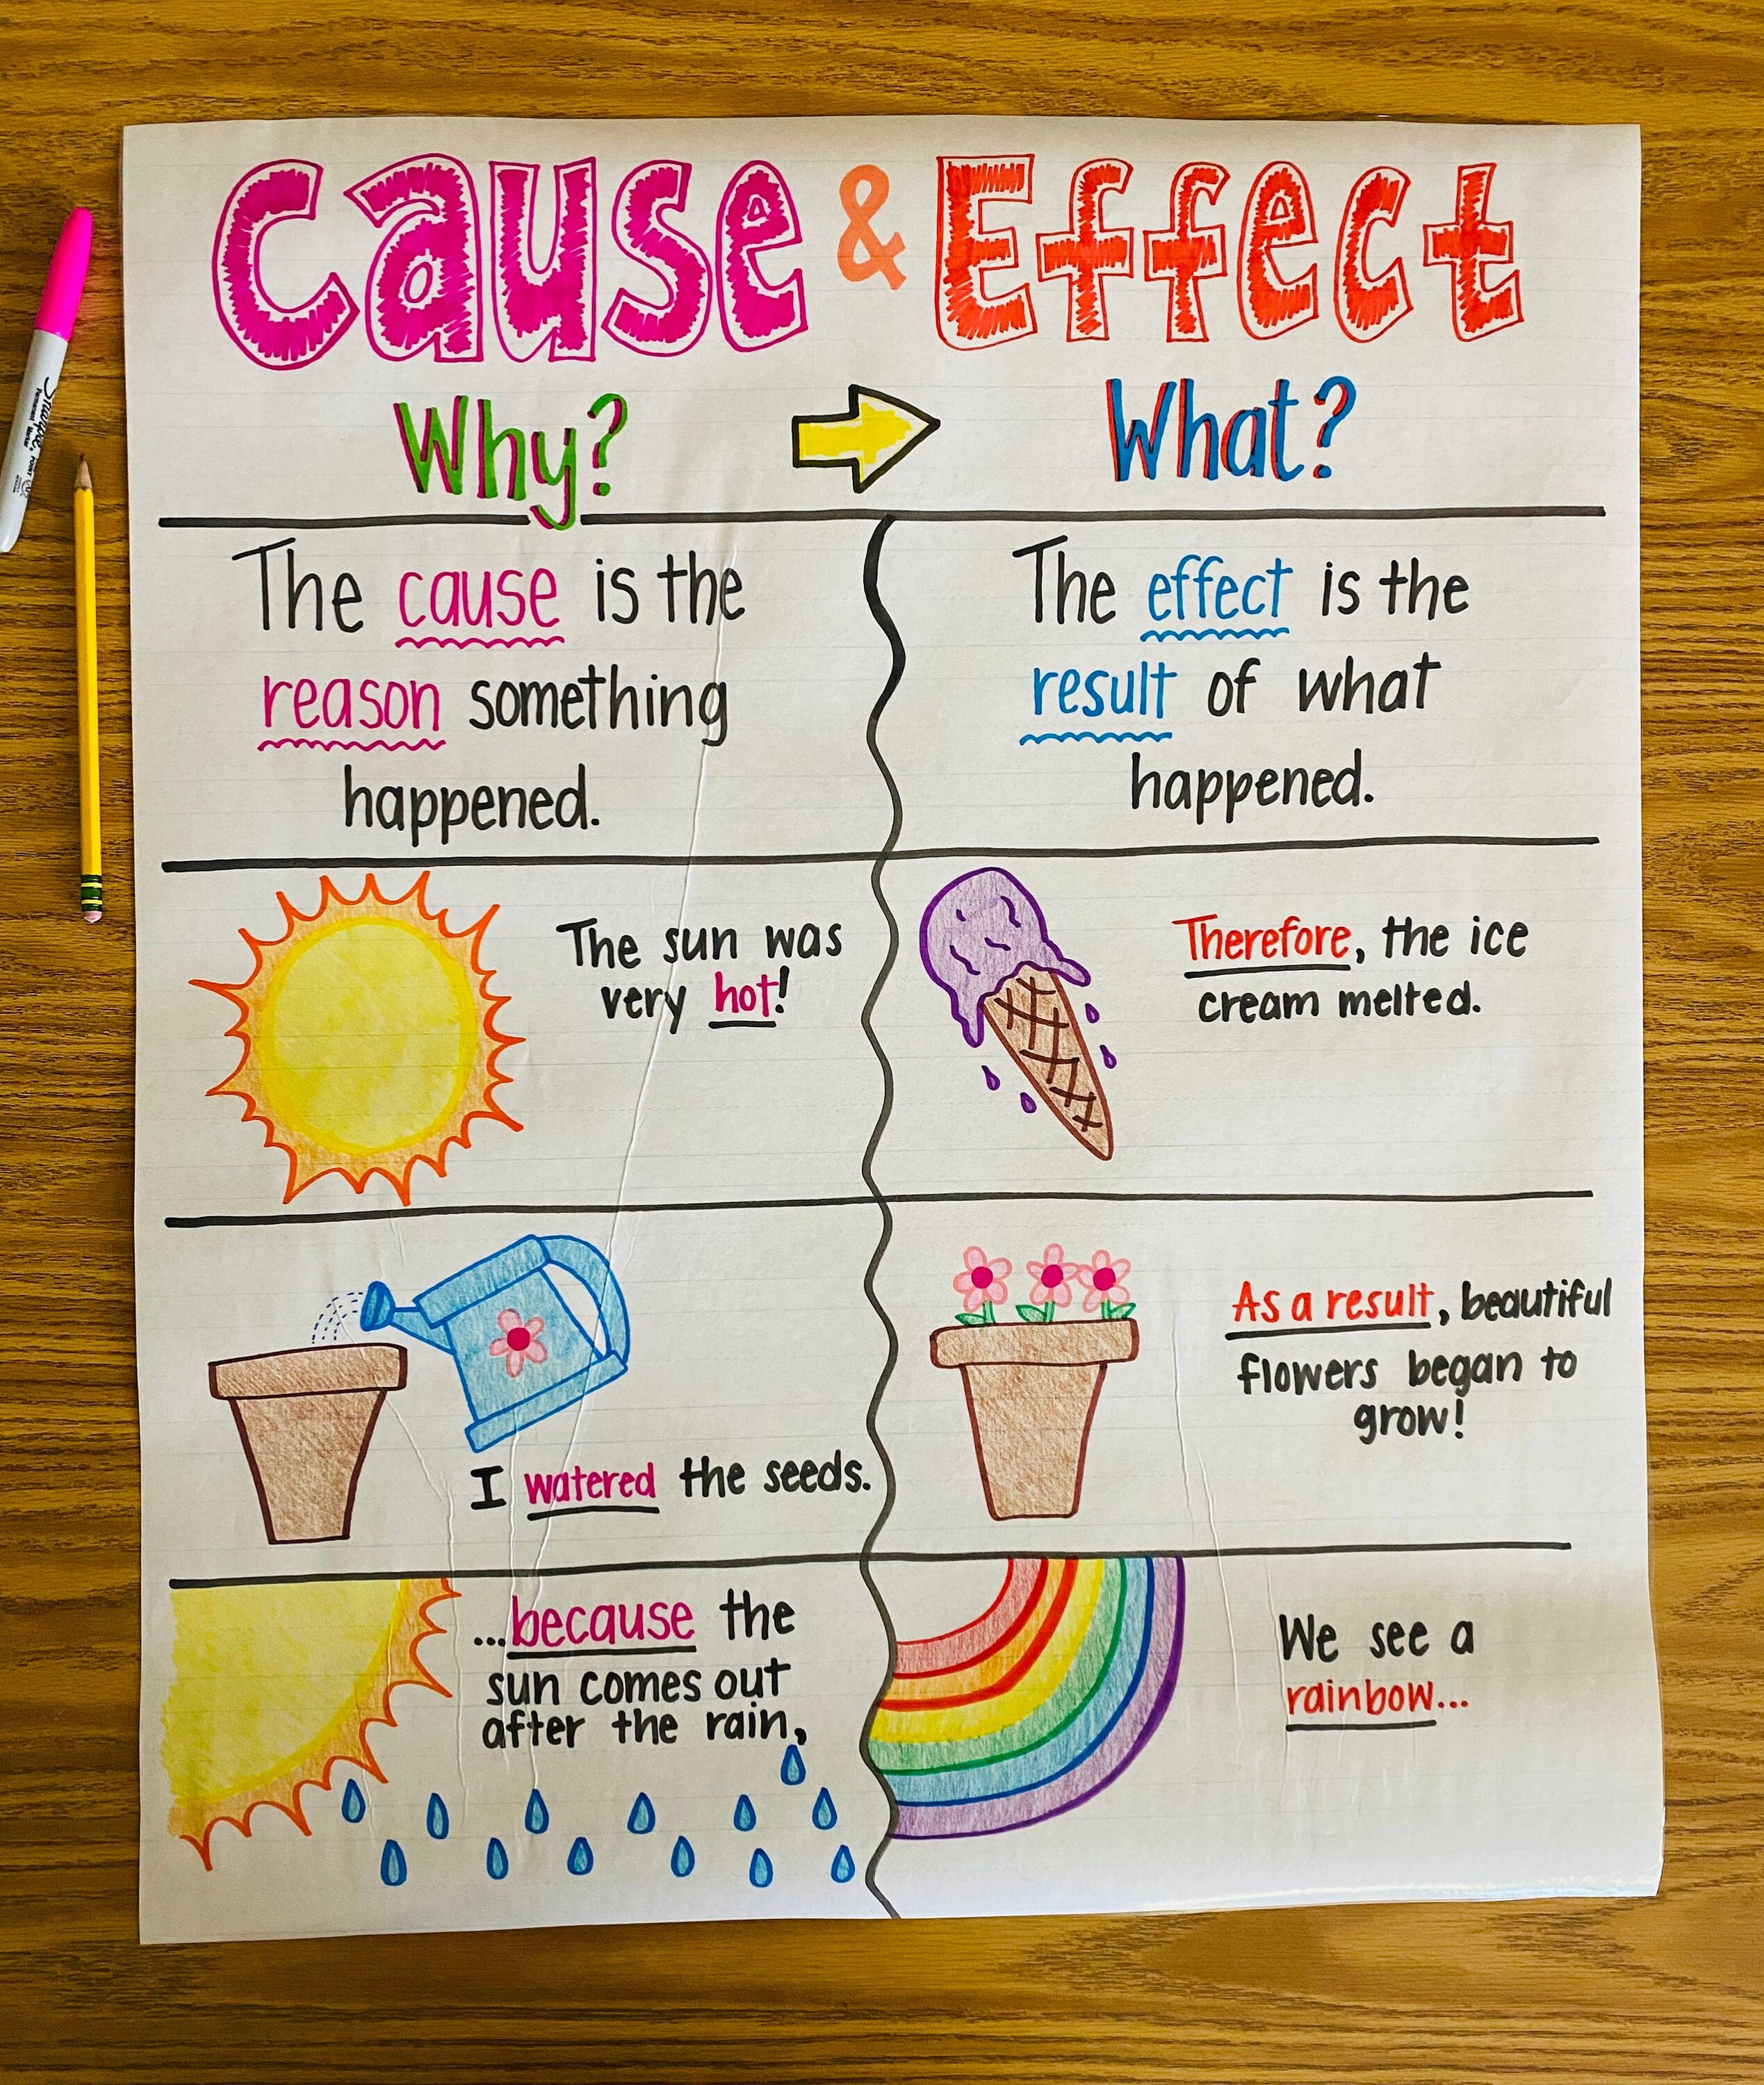 Cause & Effect
Why?
What?
The cause is the
reason something
happened.
The effect is the
result of what
happened.
The sun was
very hot!
Therefore, the ice
cream melted.
I watered the seeds.
As a result, beautiful
flowers began to
grow!
...because the
sun comes out
after the rain,
We see a
rainbow...
Sharpie
Permanent Marker